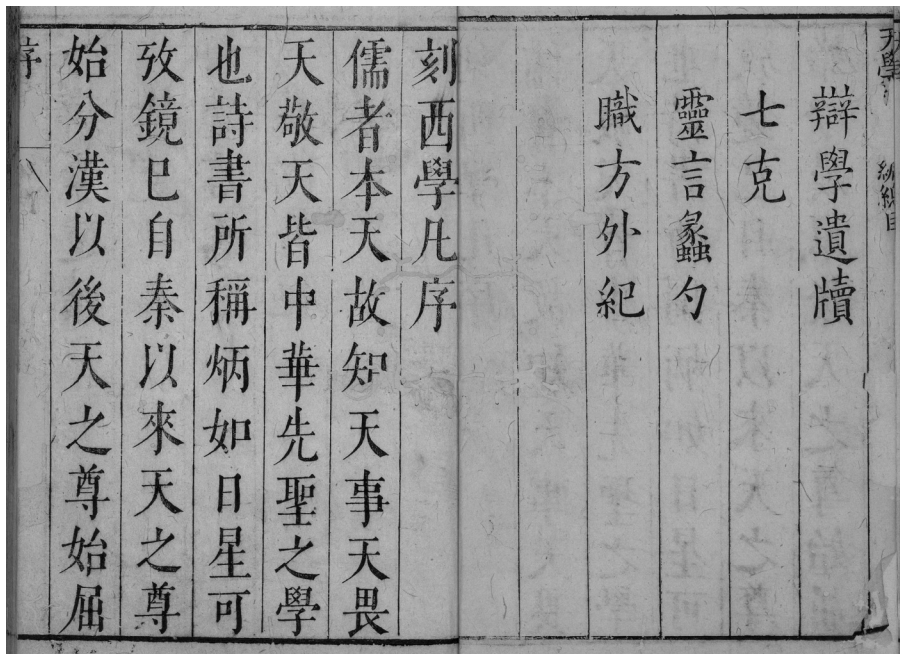 辯學遺牘
七克
靈言蠡勺
職方外紀
刻西學凡序
儒者本天故知天事天畏
天敬天皆中華先聖之學
也詩書所稱炳如日星可
攷鏡巳自秦以來天之尊
始分漢以後天之尊始屈
序